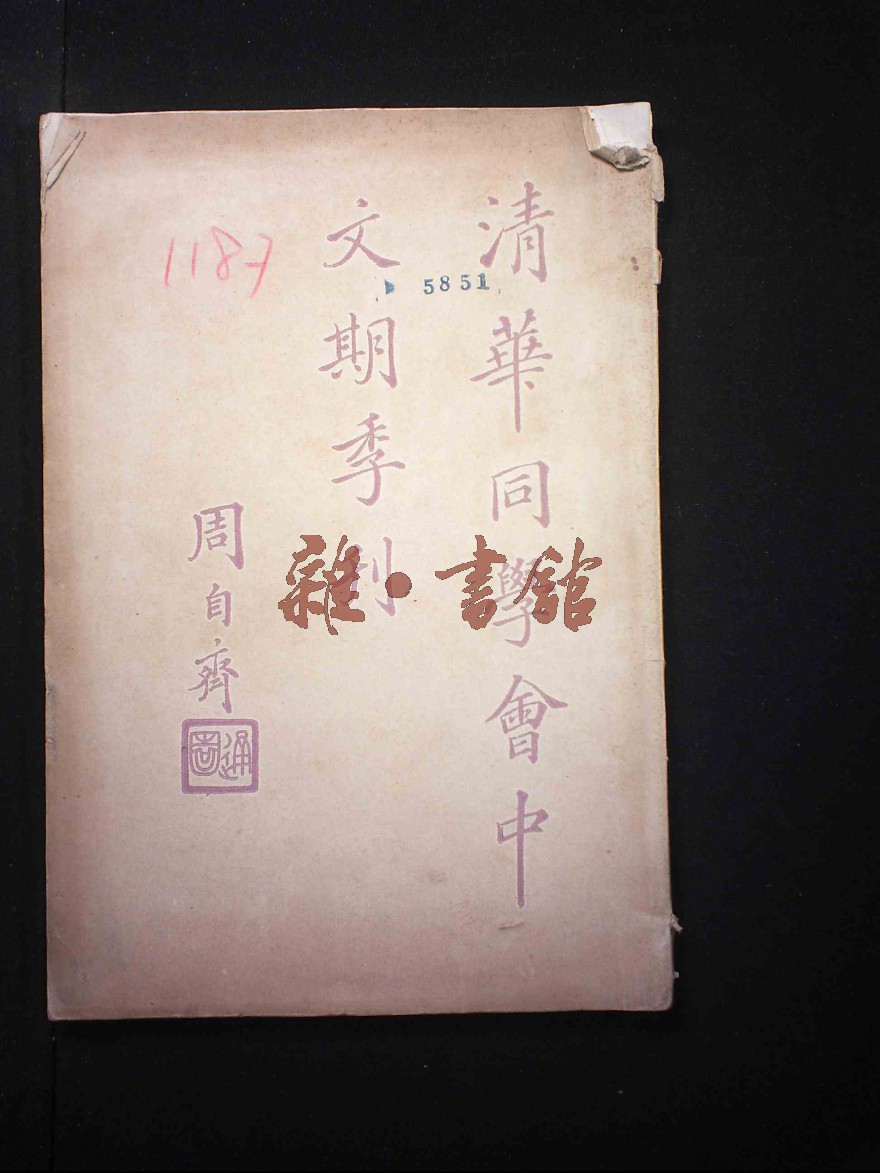 清華同學會中
文期季刊
周自齊
通圖
1187
5851
雜·書館